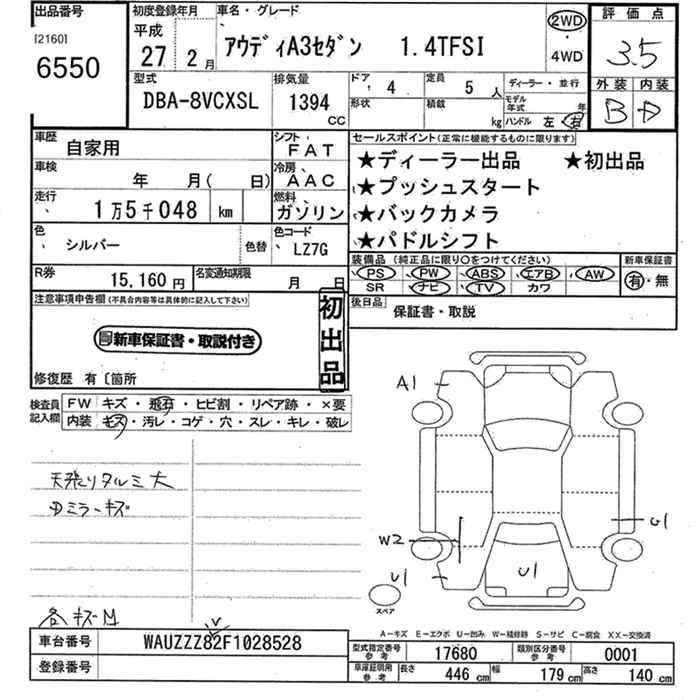 出品番号
[2160]
6550
初度登録年月
平成
27 2月
車名・グレード
アウディA3セダン 1.4TFSI
2WD
・
4WD
評価点
3.5
外装 内装
B D
型式
DBA-8VCXSL
排気量
1394
CC
ドア
4
定員
5人
ディーラー・並行
形状
積載
kg
モデル年式
年
ハンドル 左・右
車歴
自家用
シフト
FAT
車検
年 月( 日)
冷房
AAC
走行
1万5千048 km
燃料
ガソリン
色
シルバー
色替
色コード
LZ7G
R券
15,160円
名変通知期限
月 日
セールスポイント(正常に機能するものに限ります)
★ディーラー出品 ★初出品
★プッシュスタート
★バックカメラ
★パドルシフト
装備品(純正品に限り○をつけてください)
PS PW ABS エアB AW
SR ナビ TV カワ
新車保証書
有・無
後日品
保証書・取説
注意事項申告欄(不具合内容等は具体的に記入して下さい)
新車保証書・取説付き
初出品
修復歴 有〔箇所
検査員記入欄
FW キズ・飛石・ヒビ割・リペア跡・×要
内装 キズ・汚レ・コゲ・穴・スレ・キレ・破レ
天張りタルミ大
Dミラーキズ
各キズM
A1
G1
W2
U1
U1
スペア
A-キズ E-エクボ U-凹み W-補修跡 S-サビ C-腐食 XX-交換済
車台番号
WAUZZZ82F1028528
登録番号
型式指定番号
参考
17680
類別区分番号
参考
0001
車庫証明用
参考
長さ
446 cm
幅
179 cm
高さ
140 cm